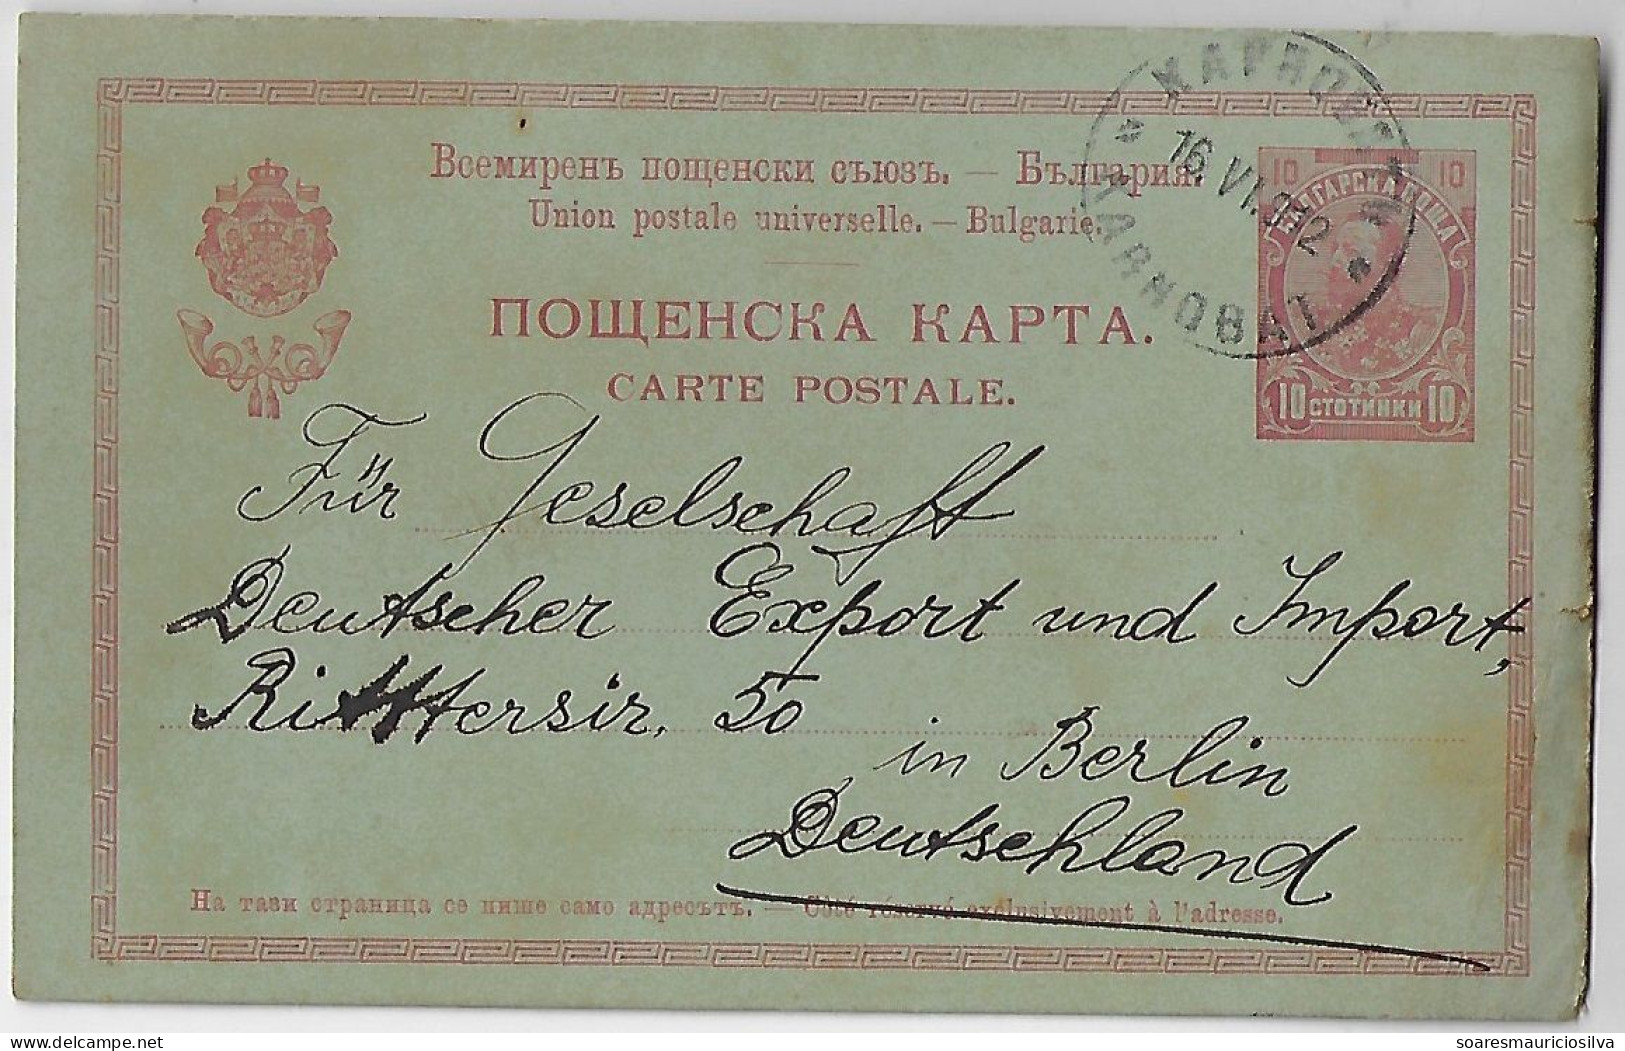 Всемиренъ пощенски съюзъ. — България.
Union postale universelle. — Bulgarie.
ПОЩЕНСКА КАРТА.
CARTE POSTALE.
10 10
БЪЛГАРСКА ПОЩА
10 СТОТИНКИ 10
16.VI.02
KARNOBAT
Für Geselschaft
Deutscher Export und Import,
Rittersir. 50
in Berlin
Deutschland
На тази страница се пише само адресътъ. — Côté réservé exclusivement à l'adresse.
soaresmauriciosilva